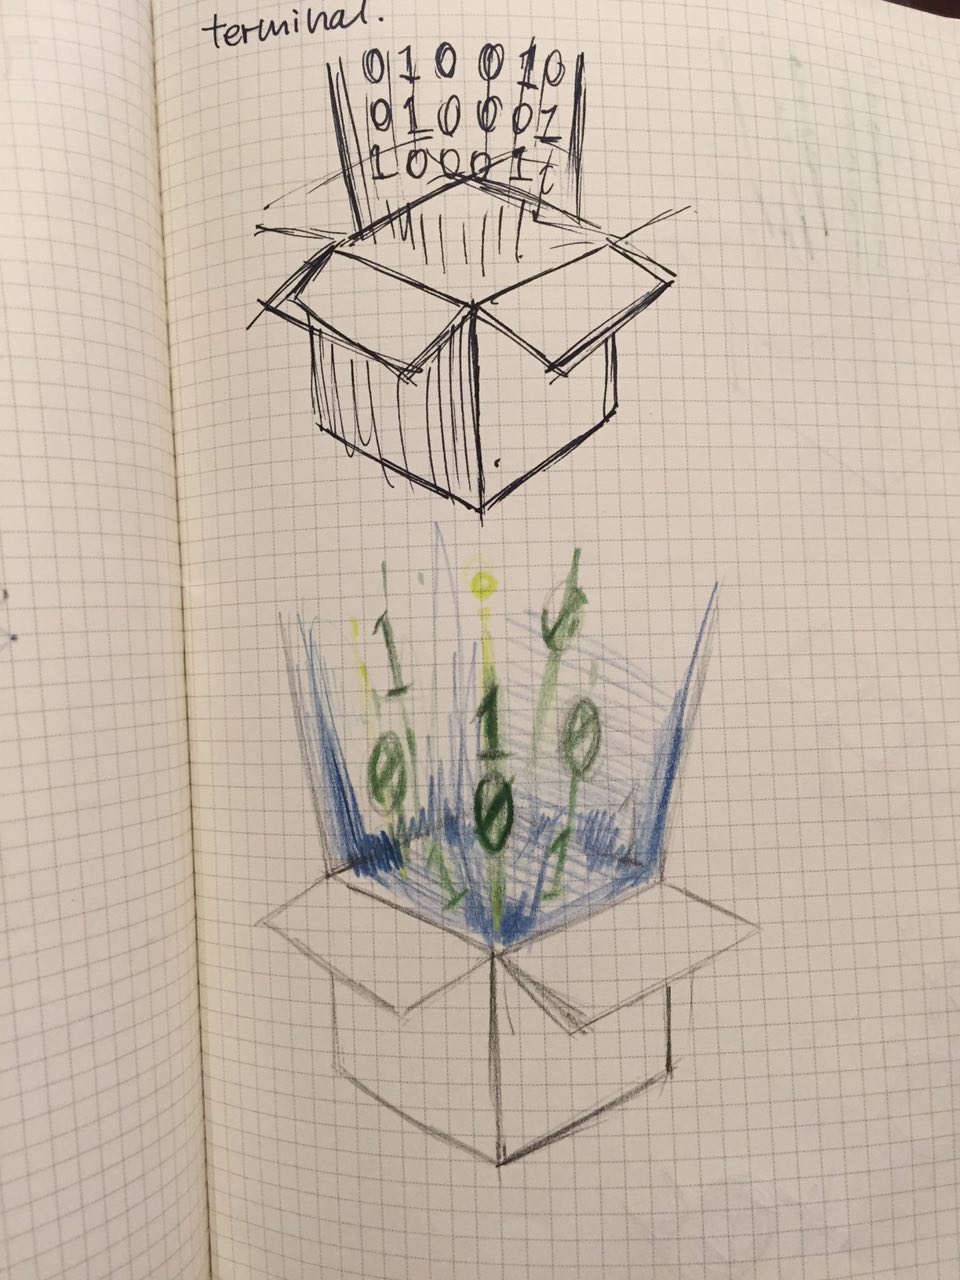 terminal.
0 1 0 0 1 0
0 1 0 0 0 1
1 0 0 0 1 1
1
0
1
0
0
1
1